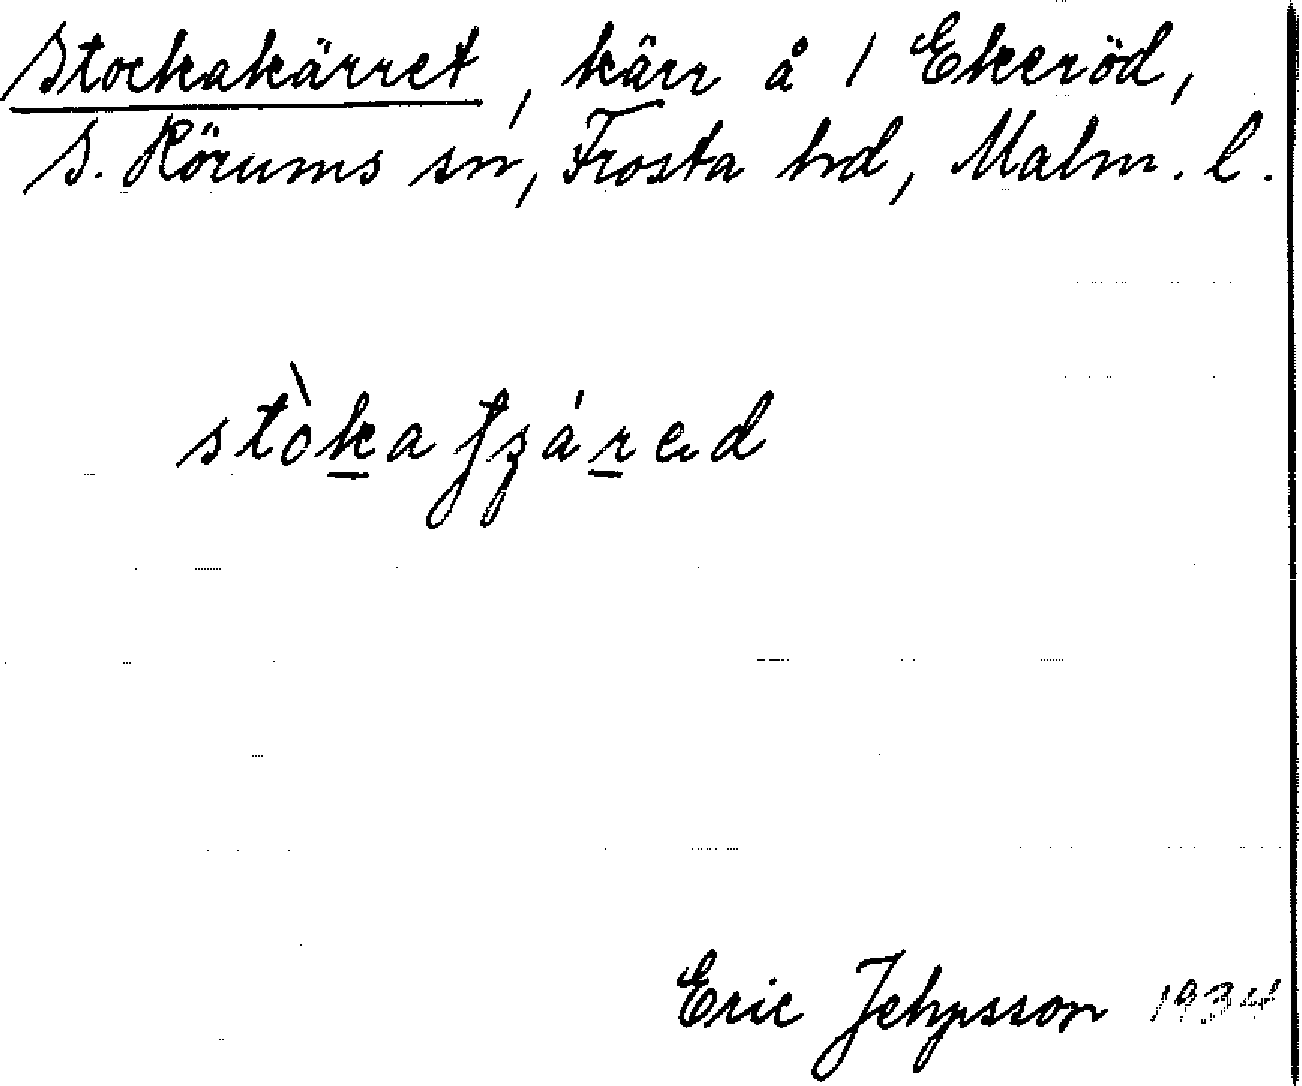 Stockakärret, kärr å 1 Ekeröd,
S. Rörums sn, Frosta hd, Malm. l.
stòka
Eric Jehpsson 1934